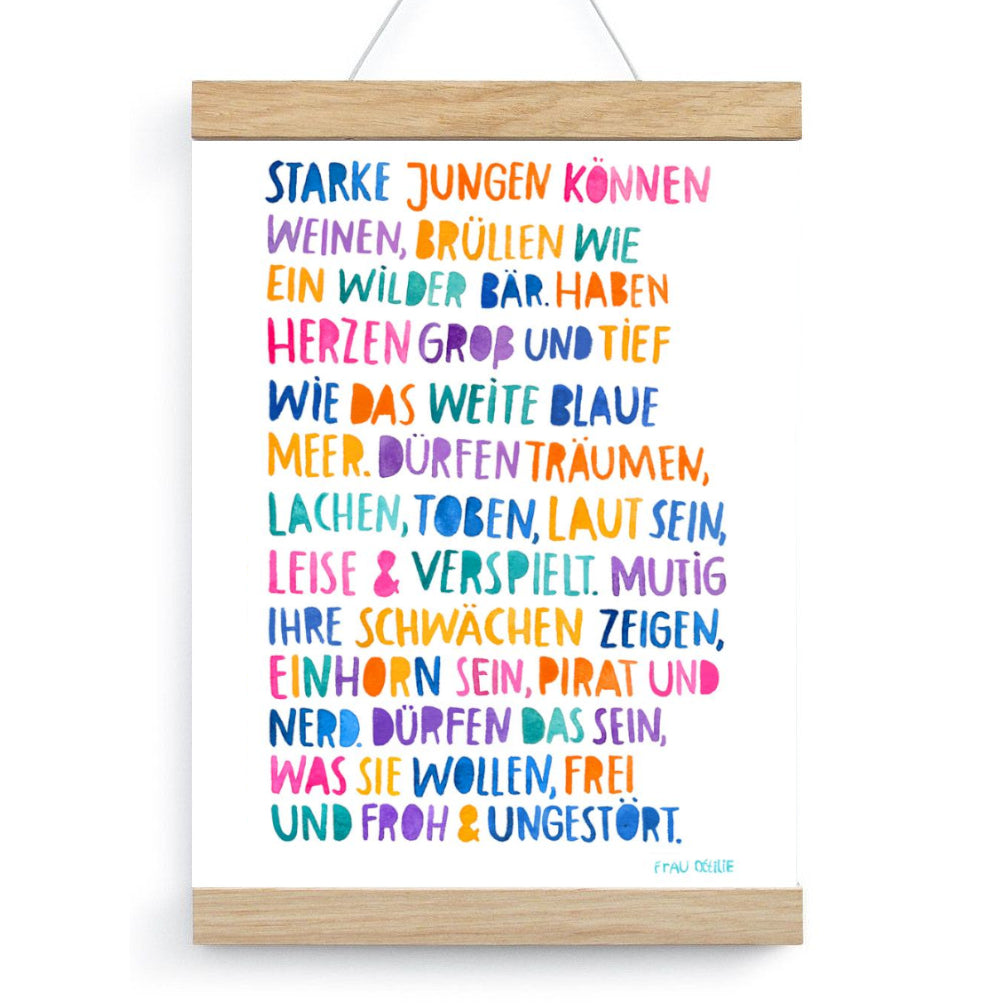 STARKE JUNGEN KÖNNEN
WEINEN, BRÜLLEN WIE
EIN WILDER BÄR. HABEN
HERZEN GROß UND TIEF
WIE DAS WEITE BLAUE
MEER. DÜRFEN TRÄUMEN,
LACHEN, TOBEN, LAUT SEIN,
LEISE & VERSPIELT. MUTIG
IHRE SCHWÄCHEN ZEIGEN,
EINHORN SEIN, PIRAT UND
NERD. DÜRFEN DAS SEIN,
WAS SIE WOLLEN, FREI
UND FROH & UNGESTÖRT.
FRAU OTTILIE